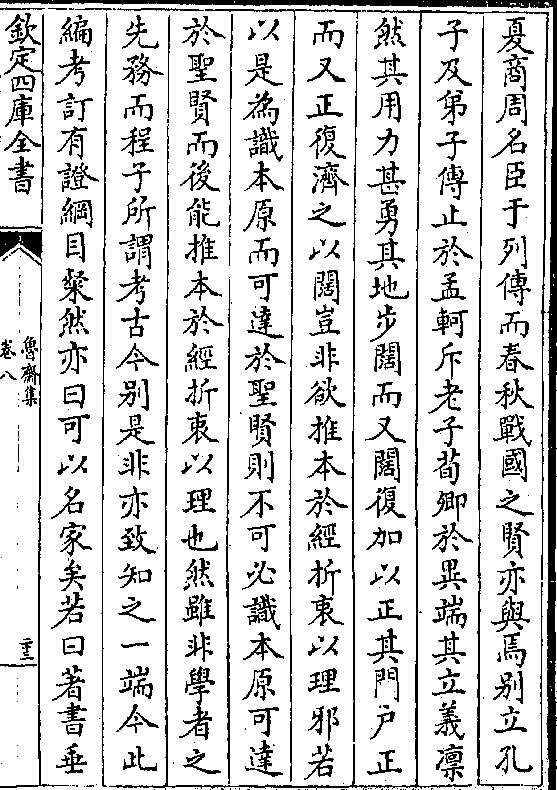 夏商周名臣于列傳而春秋戰國之賢亦與焉别立孔
子及弟子傳止於孟軻斥老子荀卿於異端其立義凛
然其用力甚勇其地步闊而又闊復加以正其門户正
而又正復濟之以闊豈非欲推本於經折衷以理邪若
以是為識本原而可達於聖賢則不可必識本原可達
於聖賢而後能推本於經折衷以理也然雖非學者之
先務而程子所謂考古今别是非亦致知之一端今此
編考訂有證綱目粲然亦曰可以名家矣若曰著書垂
欽定四庫全書
魯齋集
卷八
二十三